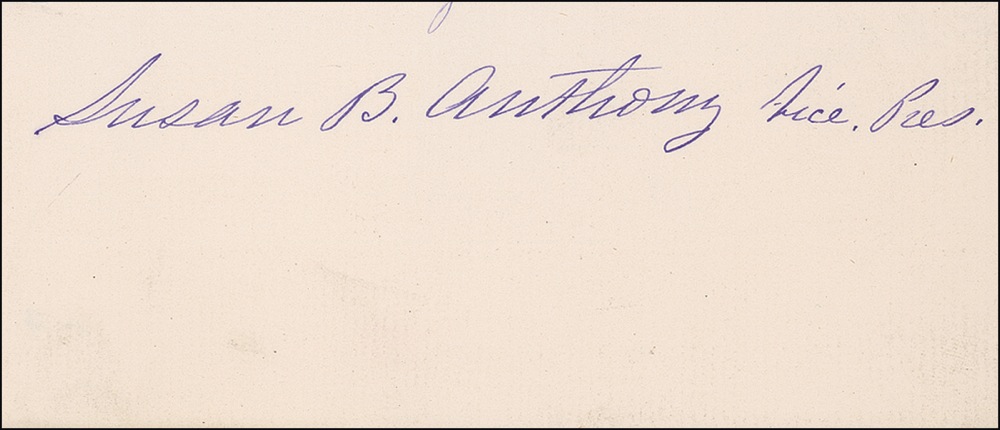 Susan B. Anthony Vice. Pres.